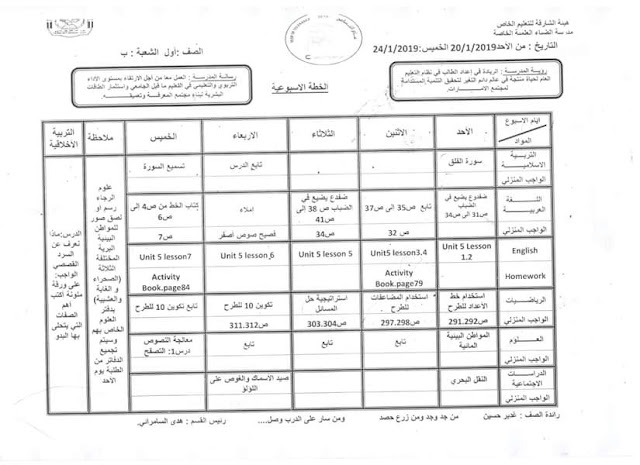 هيئة الشارقة للتعليم الخاص
مدرسة الضياء العلمية الخاصة
التاريخ : من الأحد20/1/2019 الخميس:24/1/2019
الصف :أول الشعبة : ب
رؤية المدرسة : الريادة في إعداد الطالب في نظام التعليم
العام لحياة منتجة في عالم دائم التغير لتحقيق التنمية المستدامة
لمجتمع الامـــارات.
الخطة الاسبوعية
رسالة المدرسة : العمل معا من أجل الارتقاء بمستوى الأداء
التربوي والتعليمي في التعليم ما قبل الجامعي واستثمار الطاقات
البشرية لبناء مجتمع المعرفة
ايام الاسبوع
المواد
الأحد
الاثنين
الثلاثاء
الاربعاء
الخميس
ملاحظة
التربية
الأخلاقية
التربية
الاسلامية
الواجب المنزلي
سورة الفلق
تابع الدرس
تسميع السورة
اللغة
العربية
الواجب المنزلي
ضفدوع يضيع في
الضباب
ص31 الى ص34
تابع ص35 الى ص37
ص 32
ضفدع يضيع في
الضباب ص 38 إلى
ص41
ص34
إملاء
فصيح صوص أصفر
كتاب الخط من ص4 الى
ص6
ص7
English
Homework
Unit 5 Lesson
1.2
Unit5 lesson3.4
Activity
Book.page79
Unit 5 lesson 5
Unit 5 lesson,6
Unit 5 lesson7
Activity
Book.page84
الرياضيات
الواجب المنزلي
استخدام خط
الاعداد للطرح
ص291.292
استخدام المضاعفات
للطرح
ص297.298
استراتيجية حل
المسائل
ص303.304
تكوين 10 للطرح
ص311.312
تابع تكوين 10 للطرح
العلوم
الواجب المنزلي
المواطن البينية
المائية
تابع
تابع
تابع
معالجة النصوص
درس1: التصفح
الدراسات
الاجتماعية
الواجب المنزلي
النقل البحري
صيد الاسماك والغوص على
اللؤلؤ
علوم
الرجاء
رسم او
لصق صور
للمواطن
البينية
البرية
المختلفة
الثلاثة
(الصحراء
و الغابة
والعشبية)
بدفتر
العلوم
الخاص بهم
وسيتم
تجميع
الدفاتر من
الطلبة يوم
الاحد
الدرس:ماذا
تعرف عن
السرد
القصصي
الواجب:
على ورقة
ملونة اكتب
اهم
الصفات
التي يتحلى
بها البدو
رائدة الصف : غدير حسين من جد وجد ومن زرع حصد ومن سار على الدرب وصل.... رئيس القسم : هدى السامرائي.